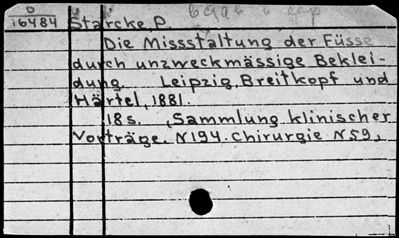 0
16484 Starcke, P
Die Missstaltung der Füsse
durch unzweckmässige Beklei-
dung. Leipzig, Breitkopf und
Härtel, 1881.
18s. „Sammlung klinischer
Vorträge. N194. Chirurgie N59„